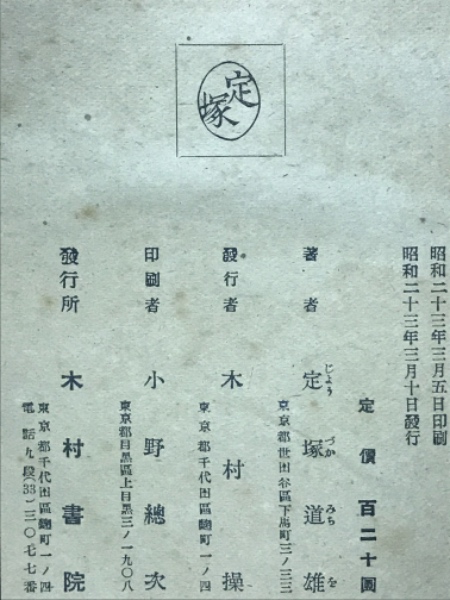 定塚
昭和二十三年三月五日印刷
昭和二十三年三月十日發行
定價百二十圓
著者 定塚道雄
じよう づか みち を
東京都世田谷區下馬町三ノ三三
發行者 木村操
東京都千代田區麹町一ノ四
印刷者 小野總次
東京都目黒區上目黒三ノ一九〇八
發行所 木村書院
東京都千代田區麹町一ノ四
電話九段(33)三〇七七番